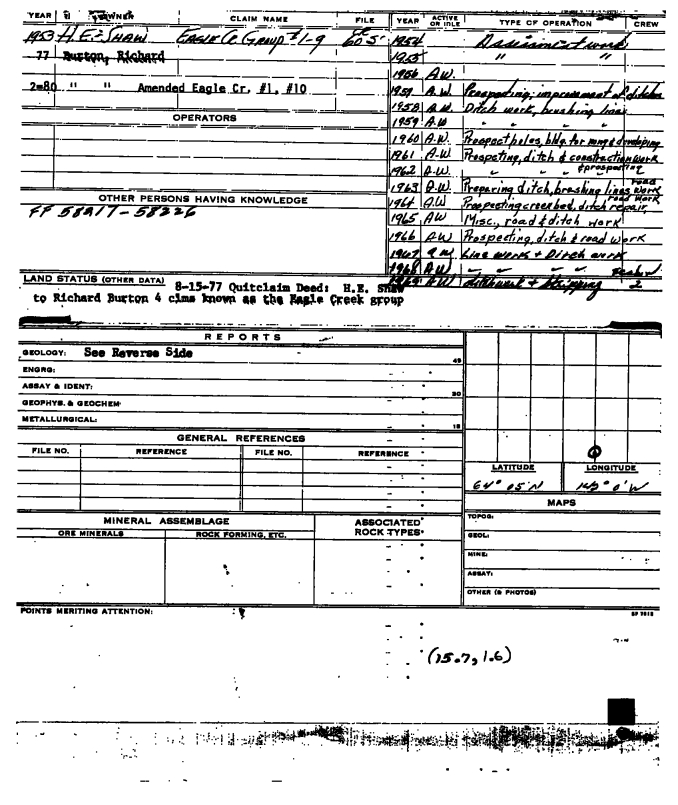 YEAR OWNER CLAIM NAME FILE YEAR ACTIVE OR IDLE TYPE OF OPERATION CREW
1953 H.E. SHAW EAGLE Cr GROUP #1-9 1954 Assessment work
77 Burton, Richard 1955 " "
1956 A.W.
2-80 " " Amended Eagle Cr. #1, #10 1957 A.W. Prospecting, improvement of ditches
1958 A.W. Ditch work, brushing lines
OPERATORS 1959 A.W " " "
1960 A.W. Prospect holes, bldg. for mng & developing
1961 A.W. Prospecting, ditch & construction work
1962 A.W. " " " & prospecting
1963 A.W. Preparing ditch, brushing lines, road work
OTHER PERSONS HAVING KNOWLEDGE 1964 AW Prospecting creek bed, ditch repair, road work
FF 58217-58226 1965 AW Misc., road & ditch work
1966 AW Prospecting, ditch & road work
1967 AW Line work + Ditch work
LAND STATUS (OTHER DATA) 1968 AW " " "
8-15-77 Quitclaim Deed: H.E. Shaw 1969 AW ditchwork & stripping 2
to Richard Burton 4 clms known as the Eagle Creek group
REPORTS
GEOLOGY: See Reverse Side 45
ENGRG:
ASSAY & IDENT: 30
GEOPHYS. & GEOCHEM
METALLURGICAL: 15
GENERAL REFERENCES
FILE NO. REFERENCE FILE NO. REFERENCE
LATITUDE LONGITUDE
64° 05' N 142° 0' W
MAPS
MINERAL ASSEMBLAGE ASSOCIATED ROCK TYPES TOPOG:
ORE MINERALS ROCK FORMING, ETC. GEOL:
MINE:
ASSAY:
OTHER (& PHOTOS)
POINTS MERITING ATTENTION:
(15.7, 1.6)